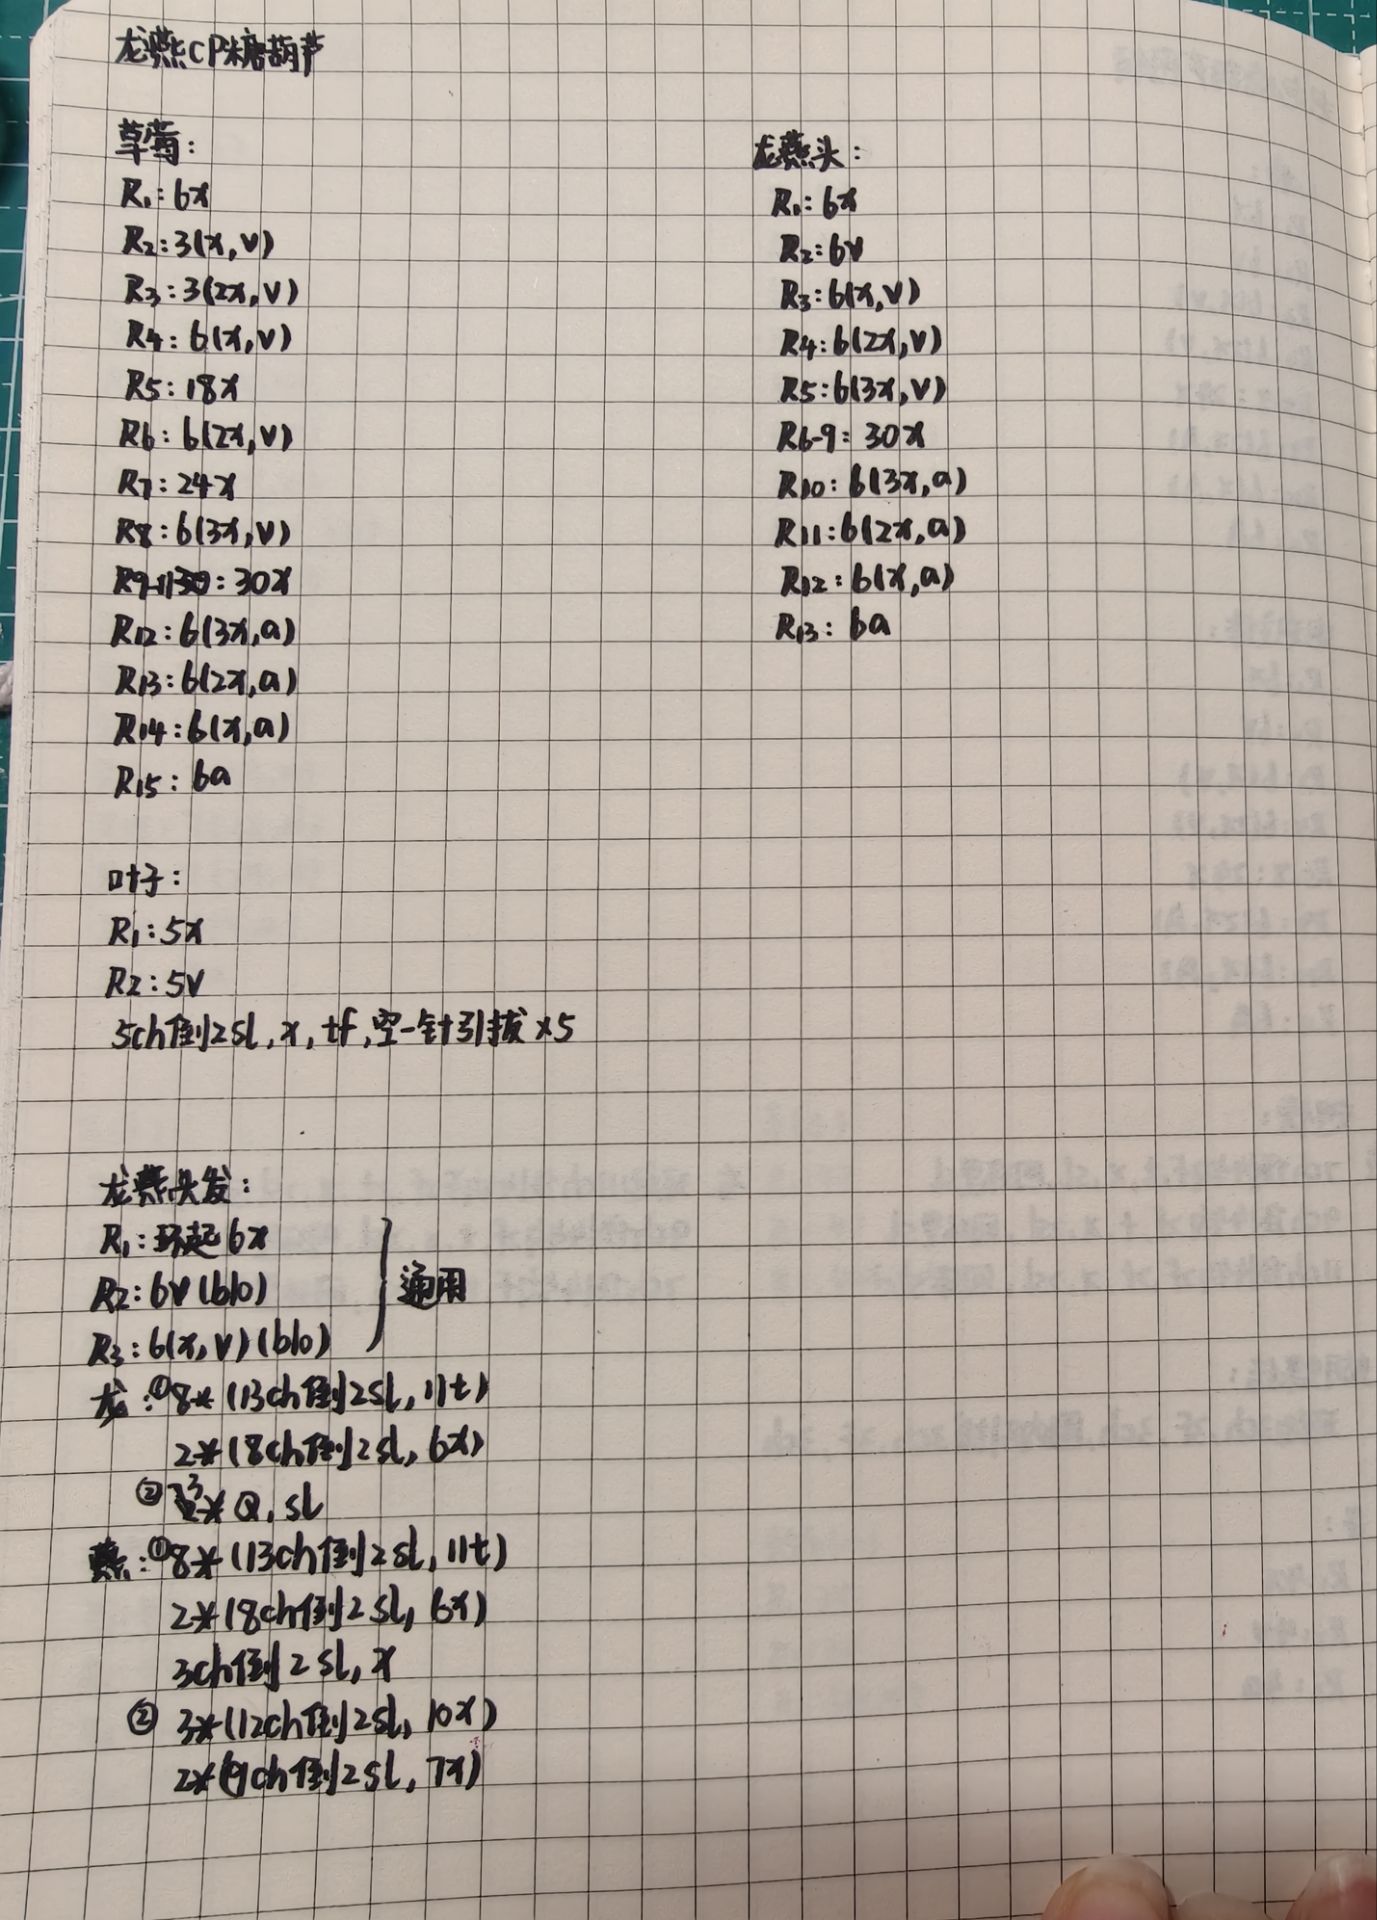 龙燕CP糖葫芦
草莓：
R1：6x
R2：3(x,v)
R3：3(2x,v)
R4：6(x,v)
R5：18x
R6：6(2x,v)
R7：24x
R8：6(3x,v)
R9-11：30x
R12：6(3x,a)
R13：6(2x,a)
R14：6(x,a)
R15：6a
叶子：
R1：5x
R2：5v
5ch倒2sl,x,tf,空一针引拔×5
龙燕头：
R1：6x
R2：6v
R3：6(x,v)
R4：6(2x,v)
R5：6(3x,v)
R6-9：30x
R10：6(3x,a)
R11：6(2x,a)
R12：6(x,a)
R13：6a
龙燕头发：
R1：环起6x
R2：6v(blo)
R3：6(x,v)(blo)
通用
龙：①8*(13ch倒2sl,11t)
2*(8ch倒2sl,6x)
②3*Q,sl
燕：①8*(13ch倒2sl,11t)
2*(8ch倒2sl,6x)
3ch倒2sl,x
②3*(12ch倒2sl,10x)
2*(9ch倒2sl,7x)